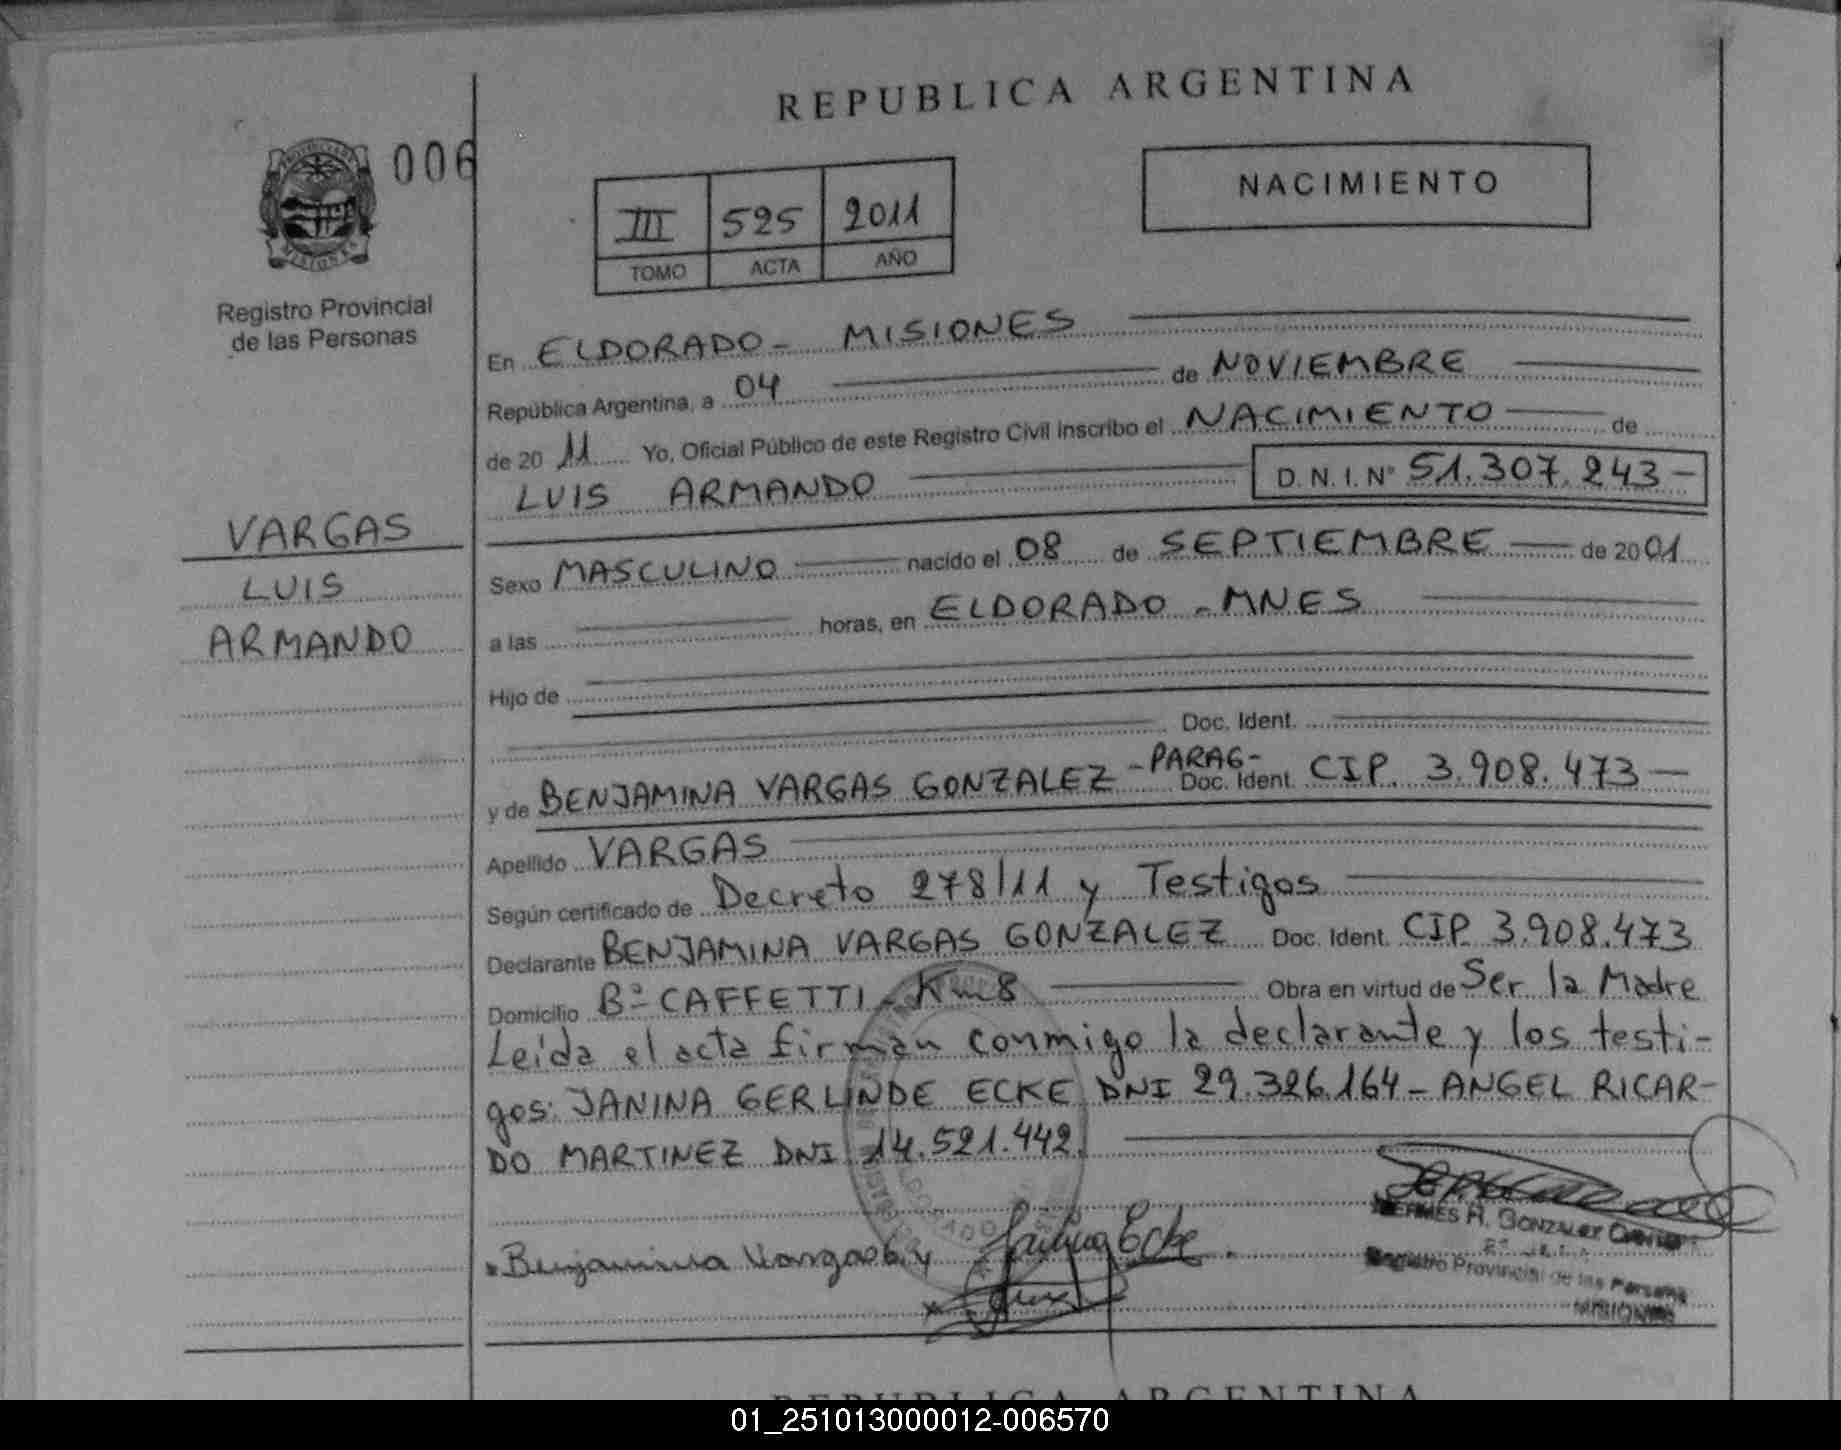 REPUBLICA ARGENTINA
006
NACIMIENTO
III 525 2011
TOMO ACTA AÑO
Registro Provincial
de las Personas
En ELDORADO - MISIONES
República Argentina, a 04 de NOVIEMBRE
de 20 11 Yo, Oficial Público de este Registro Civil inscribo el NACIMIENTO de
LUIS ARMANDO D.N.I. Nº 51.307.243-
VARGAS
LUIS
ARMANDO
Sexo MASCULINO nacido el 08 de SEPTIEMBRE de 2001
a las horas, en ELDORADO - MNES
Hijo de
Doc. Ident.
y de BENJAMINA VARGAS GONZALEZ -PARAG- Doc. Ident. CIP. 3.908.473-
Apellido VARGAS
Según certificado de Decreto 278/11 y Testigos
Declarante BENJAMINA VARGAS GONZALEZ Doc. Ident. CIP 3.908.473
Domicilio Bº CAFFETTI - Km 8 Obra en virtud de Ser la Madre
Leída el acta firman conmigo la declarante y los testi-
gos: JANINA GERLINDE ECKE DNI 29.326.164 - ANGEL RICAR-
DO MARTINEZ DNI 14.521.442.
Benjamina Vargas Ecke
HERMES H. GONZALEZ
Registro Provincial de las Personas
MISIONES
REPUBLICA ARGENTINA
01_251013000012-006570